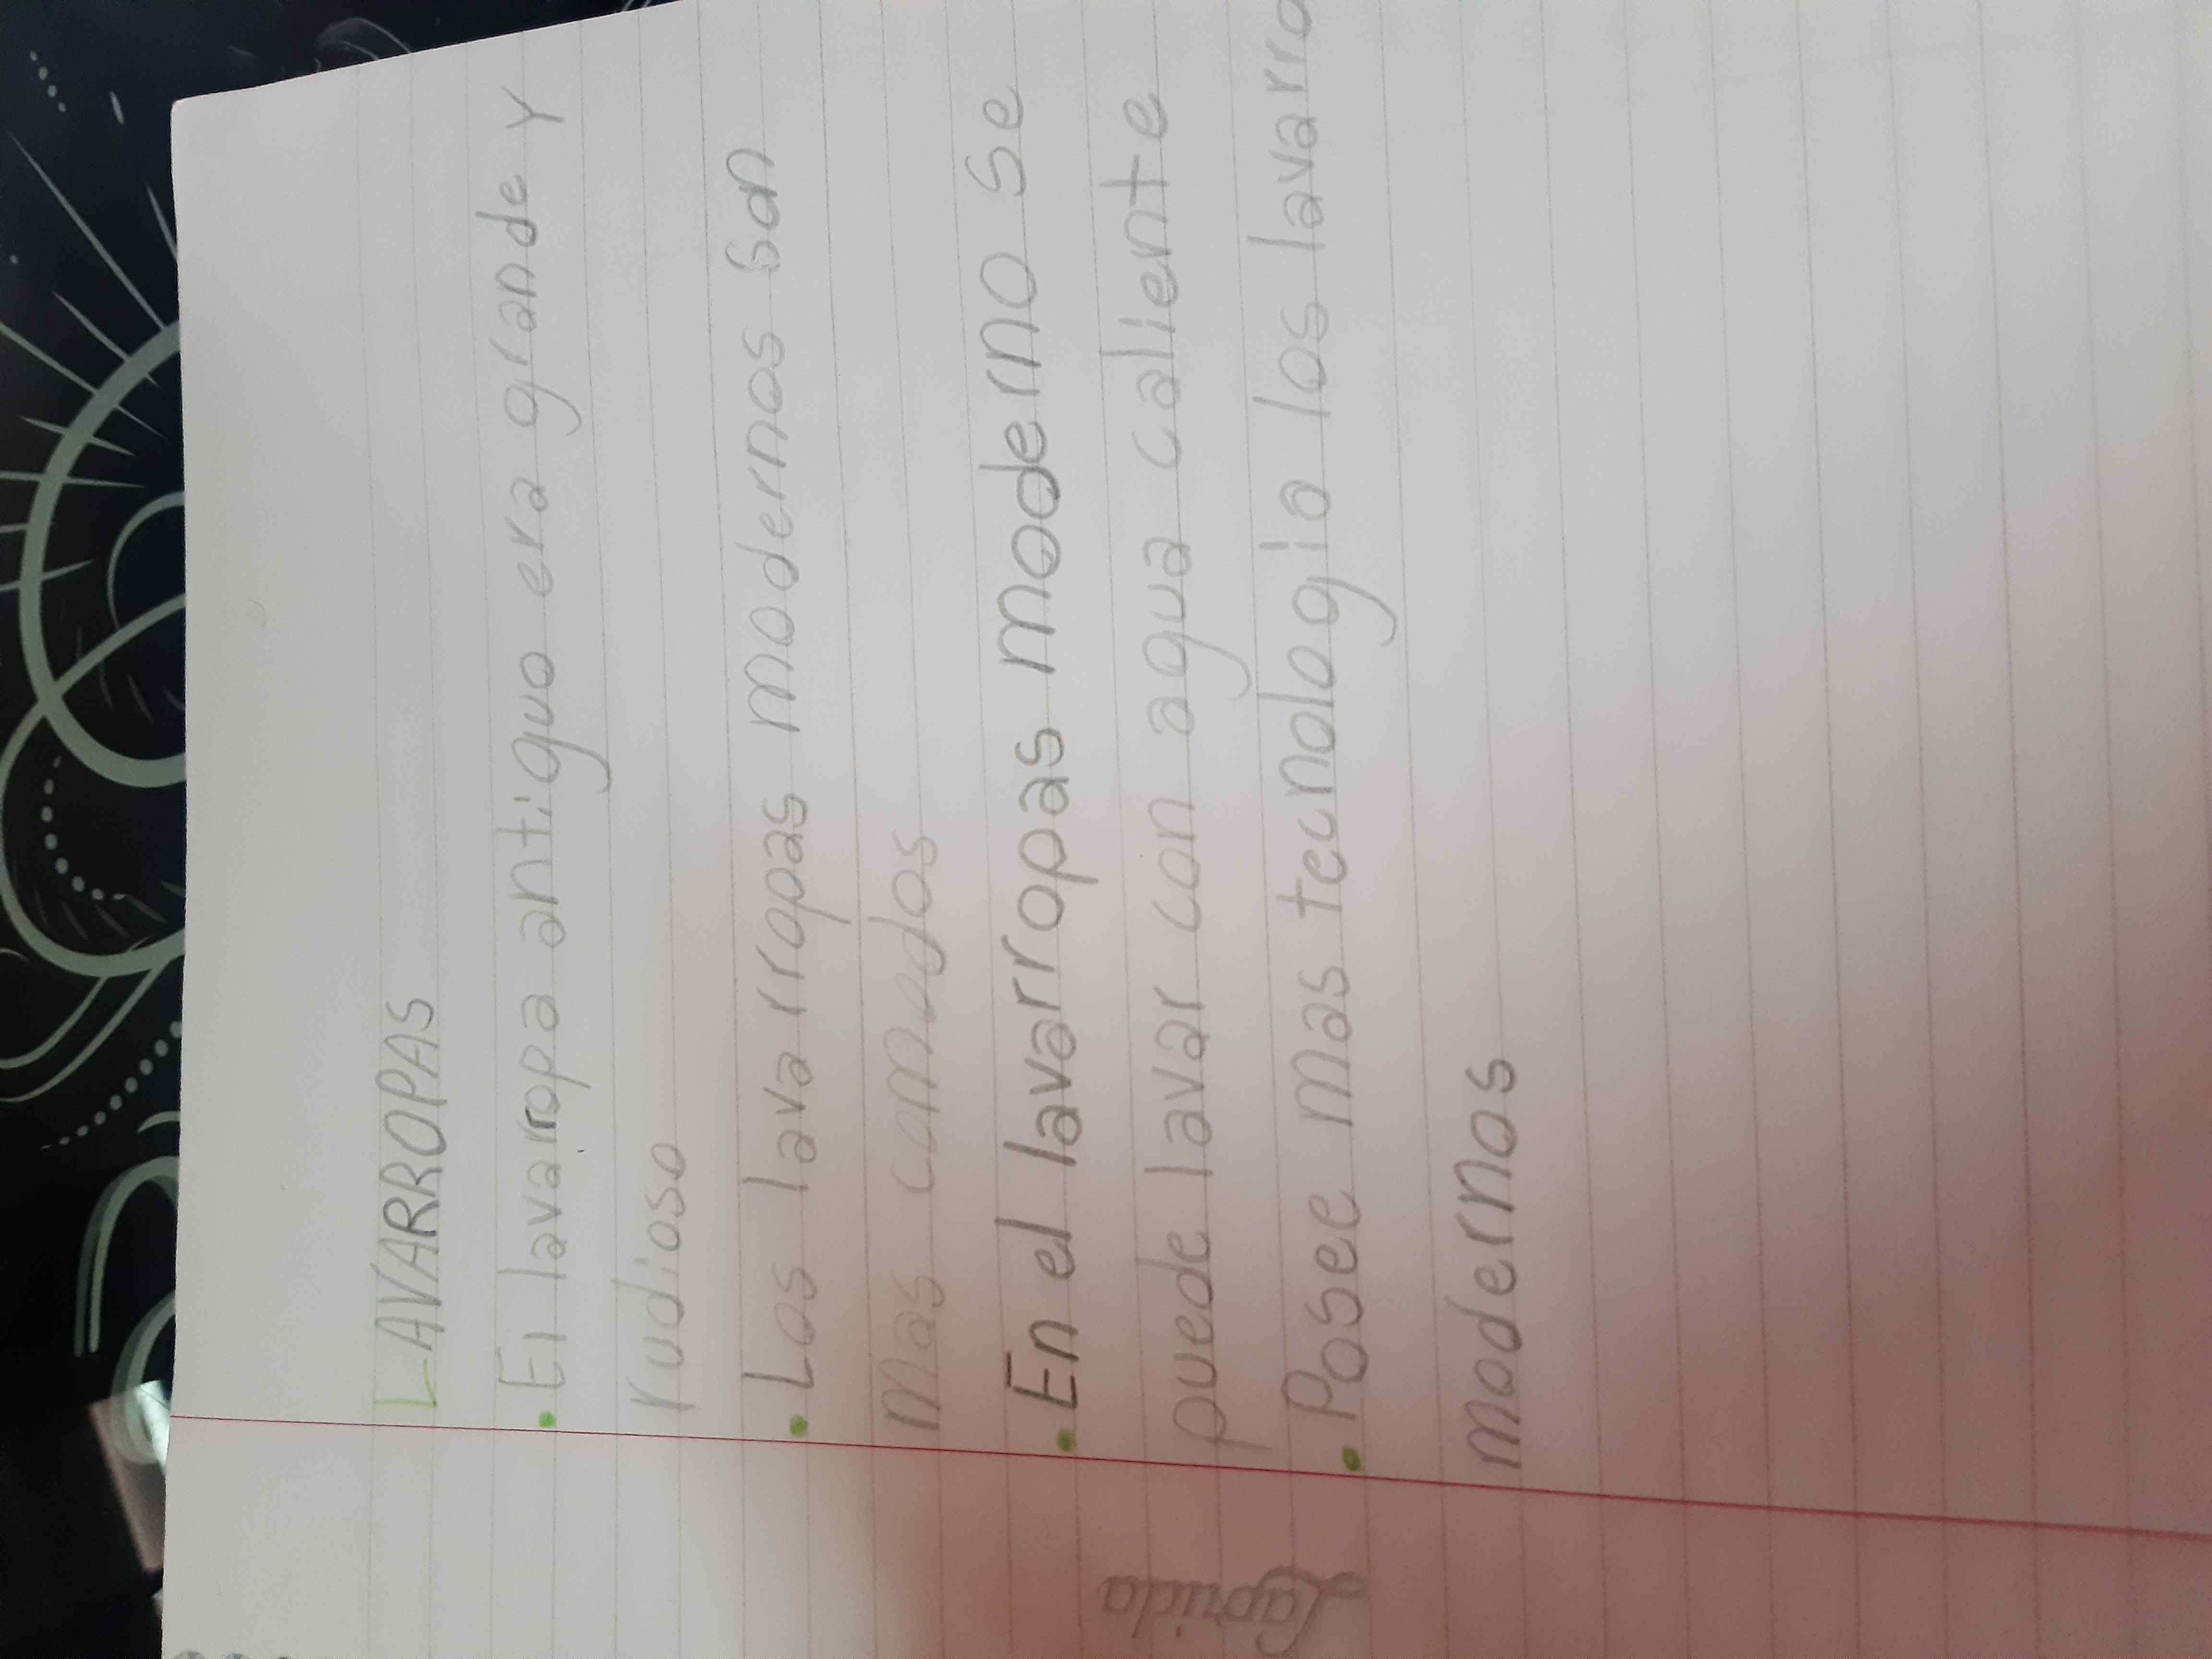 LAVARROPAS
• El lavarropa antiguo era grande y
rudioso
• Los lavarropas modernos son
mas comodos
• En el lavarropas moderno se
puede lavar con agua caliente
• Posee mas tecnologia los lavarro
modernos
Laprida